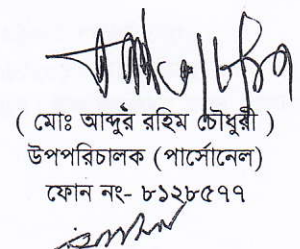 ( মোঃ আব্দুর রহিম চৌধুরী )
উপপরিচালক (পার্সোনেল)
ফোন নং- ৮১২৮৫৭৭